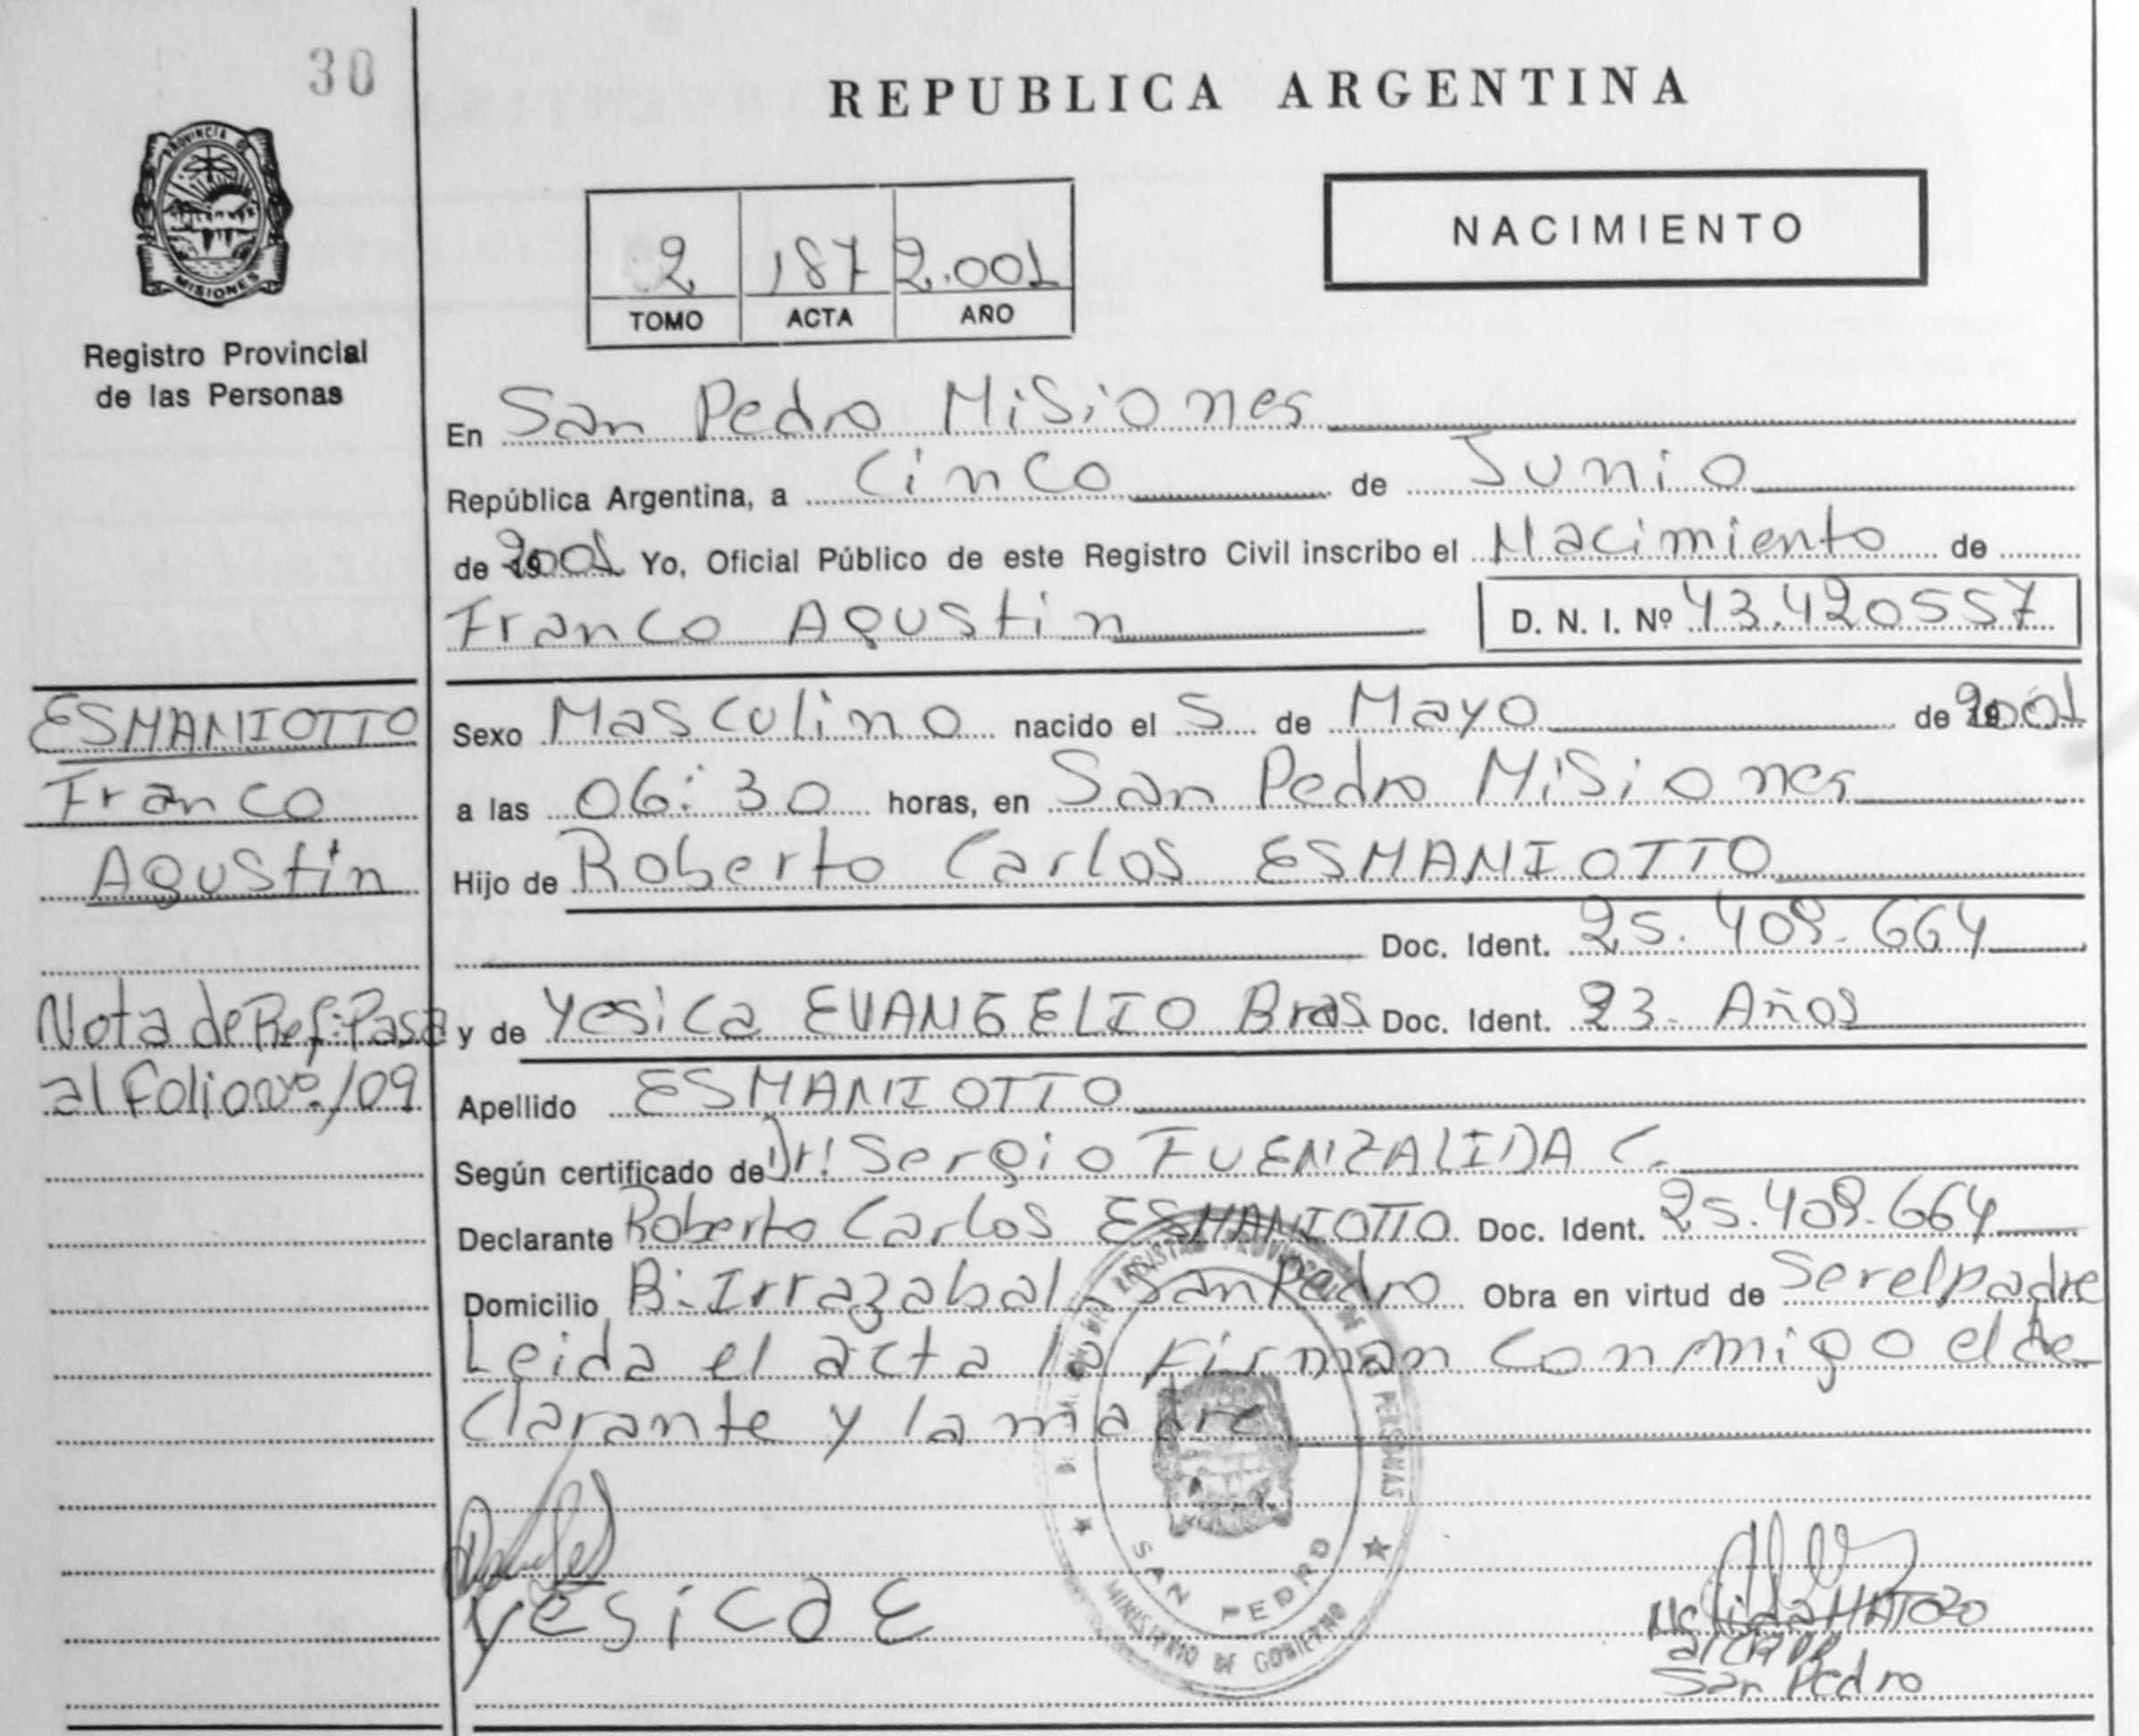 30
REPUBLICA ARGENTINA
PROVINCIA DE
MISIONES
Registro Provincial
de las Personas
2 187 2.001
TOMO ACTA AÑO
NACIMIENTO
En San Pedro Misiones
República Argentina, a Cinco de Junio
de 2001 Yo, Oficial Público de este Registro Civil inscribo el Nacimiento de
Franco Agustin D. N. I. Nº 43.420557
ESMANIOTTO
Franco
Agustin
Nota de Ref: Pasa
al folio Nº /09
Sexo Masculino nacido el 5 de Mayo de 2001
a las 06:30 horas, en San Pedro Misiones
Hijo de Roberto Carlos ESMANIOTTO
Doc. Ident. 25.409.664
y de Yesica EVANGELIO Bras Doc. Ident. 23. Años
Apellido ESMANIOTTO
Según certificado de Dr: Sergio FUENZALIDA C.
Declarante Roberto Carlos ESMANIOTTO Doc. Ident. 25.409.664
Domicilio B: Irrazabal San Pedro Obra en virtud de Ser el padre
Leida el acta la Firman Conmigo el de
Clarante y la madre
Yesica E
REGISTRO PROVINCIAL DE LAS PERSONAS
SAN PEDRO
MINISTERIO DE GOBIERNO
MATOZO
San Pedro